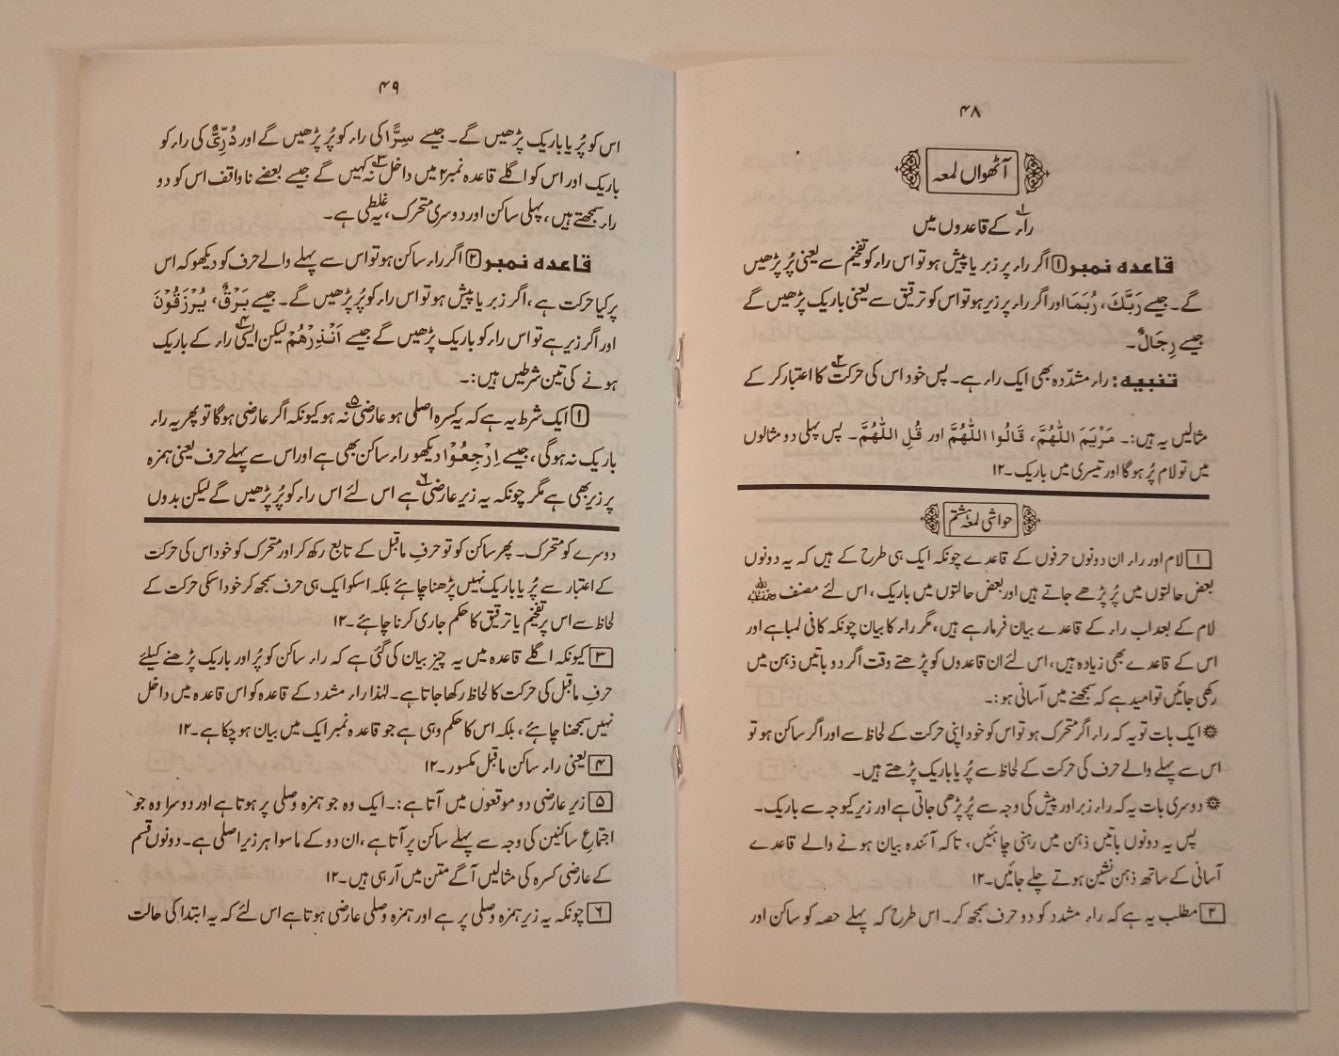 ۴۸
آٹھواں لمعہ
راء کے قاعدوں میں
قاعدہ نمبر ۱ اگر راء پر زبر یا پیش ہو تو اس راء کو تفخیم سے یعنی پُر پڑھیں
گے۔ جیسے رَبَّكَ، رُبَمَا اور اگر راء پر زیر ہو تو اس کو ترقیق سے یعنی باریک پڑھیں گے
جیسے رِجَالٌ۔
تنبیہ: راء مشدّدہ بھی ایک راء ہے۔ پس خود اس کی حرکت۲ کا اعتبار کر کے
مثالیں یہ ہیں:۔ مَرْيَمَ اللّٰهُمَّ، قَالُوا اللّٰهُمَّ اور قُلِ اللّٰهُمَّ۔ پس پہلی دو مثالوں
میں تو لام پُر ہوگا اور تیسری میں باریک۔۱۲
حواشی لمعہٴ ہشتم
۱ لام اور راء ان دونوں حرفوں کے قاعدے چونکہ ایک ہی طرح کے ہیں کہ یہ دونوں
بعض حالتوں میں پُر پڑھے جاتے ہیں اور بعض حالتوں میں باریک، اس لئے مصنف
لام کے بعد اب راء کے قاعدے بیان فرما رہے ہیں، مگر راء کا بیان چونکہ کافی لمبا ہے اور
اس کے قاعدے بھی زیادہ ہیں، اس لئے ان قاعدوں کو پڑھتے وقت اگر دو باتیں ذہن میں
رکھی جائیں تو امید ہے کہ سمجھنے میں آسانی ہو:۔
* ایک بات تو یہ کہ راء اگر متحرک ہو تو اس کو خود اپنی حرکت کے لحاظ سے اور اگر ساکن ہو تو
اس سے پہلے والے حرف کی حرکت کے لحاظ سے پُر یا باریک پڑھتے ہیں۔
* دوسری بات یہ کہ راء زبر اور پیش کی وجہ سے پُر پڑھی جاتی ہے اور زیر کیوجہ سے باریک۔
پس یہ دونوں باتیں ذہن میں رہنی چاہئیں، تاکہ آئندہ بیان ہونے والے قاعدے
آسانی کے ساتھ ذہن نشین ہوتے چلے جائیں۔۱۲
۲ مطلب یہ ہے کہ راء مشدد کو دو حرف سمجھ کر۔ اس طرح کہ پہلے حصہ کو ساکن اور
۴۹
اس کو پُر یا باریک پڑھیں گے۔ جیسے سِرًّا کی راء کو پُر پڑھیں گے اور دُرِّیٌّ کی راء کو
باریک اور اس کو اگلے قاعدہ نمبر ۲ میں داخل۳ نہ کہیں گے جیسے بعضے ناواقف اس کو دو
راء سمجھتے ہیں، پہلی ساکن اور دوسری متحرک، یہ غلطی ہے۔
قاعدہ نمبر ۲ اگر راء ساکن ہو تو اس سے پہلے والے حرف کو دیکھو کہ اس
پر کیا حرکت ہے، اگر زبر یا پیش ہو تو اس راء کو پُر پڑھیں گے۔ جیسے بَرْقٌ، یُرْزَقُوْنَ
اور اگر زیر ہے تو اس راء کو باریک پڑھیں گے جیسے اَنْذِرْهُمْ لیکن ایسی۴ راء کے باریک
ہونے کی تین شرطیں ہیں:۔
۱ ایک شرط یہ ہے کہ یہ کسرہ اصلی ہو عارضی۵ نہ ہو کیونکہ اگر عارضی ہوگا تو پھر یہ راء
باریک نہ ہوگی، جیسے اِرْجِعُوْا دیکھو راء ساکن بھی ہے اور اس سے پہلے حرف یعنی ہمزہ
پر زیر بھی ہے مگر چونکہ یہ زیر عارضی۶ ہے اس لئے اس راء کو پُر پڑھیں گے لیکن بدوں
دوسرے کو متحرک۔ پھر ساکن کو تو حرفِ ماقبل کے تابع رکھ کر اور متحرک کو خود اس کی حرکت
کے اعتبار سے پُر یا باریک نہیں پڑھنا چاہئے بلکہ اسکو ایک ہی حرف سمجھ کر خود اسکی حرکت کے
لحاظ سے اس پر تفخیم یا ترقیق کا حکم جاری کرنا چاہئے۔۱۲
۳ کیونکہ اگلے قاعدہ میں یہ چیز بیان کی گئی ہے کہ راء ساکن کو پُر اور باریک پڑھنے کیلئے
حرفِ ماقبل کی حرکت کا لحاظ رکھا جاتا ہے۔ لہٰذا راء مشدد کے قاعدہ کو اس قاعدہ میں داخل
نہیں سمجھنا چاہئے، بلکہ اس کا حکم وہی ہے جو قاعدہ نمبر ایک میں بیان ہو چکا ہے۔۱۲
۴ یعنی راء ساکن ماقبل مکسور۔۱۲
۵ زیرِ عارضی دو موقعوں میں آتا ہے:۔ ایک وہ جو ہمزہ وصلی پر ہوتا ہے اور دوسرا وہ جو
اجتماعِ ساکنین کی وجہ سے پہلے ساکن پر آتا ہے، ان دو کے ماسوا ہر زیر اصلی ہے۔ دونوں قسم
کے عارضی کسرہ کی مثالیں آگے متن میں آ رہی ہیں۔۱۲
۶ چونکہ یہ زیر ہمزہ وصلی پر ہے اور ہمزہ وصلی عارضی ہوتا ہے اس لئے کہ یہ ابتدا کی حالت